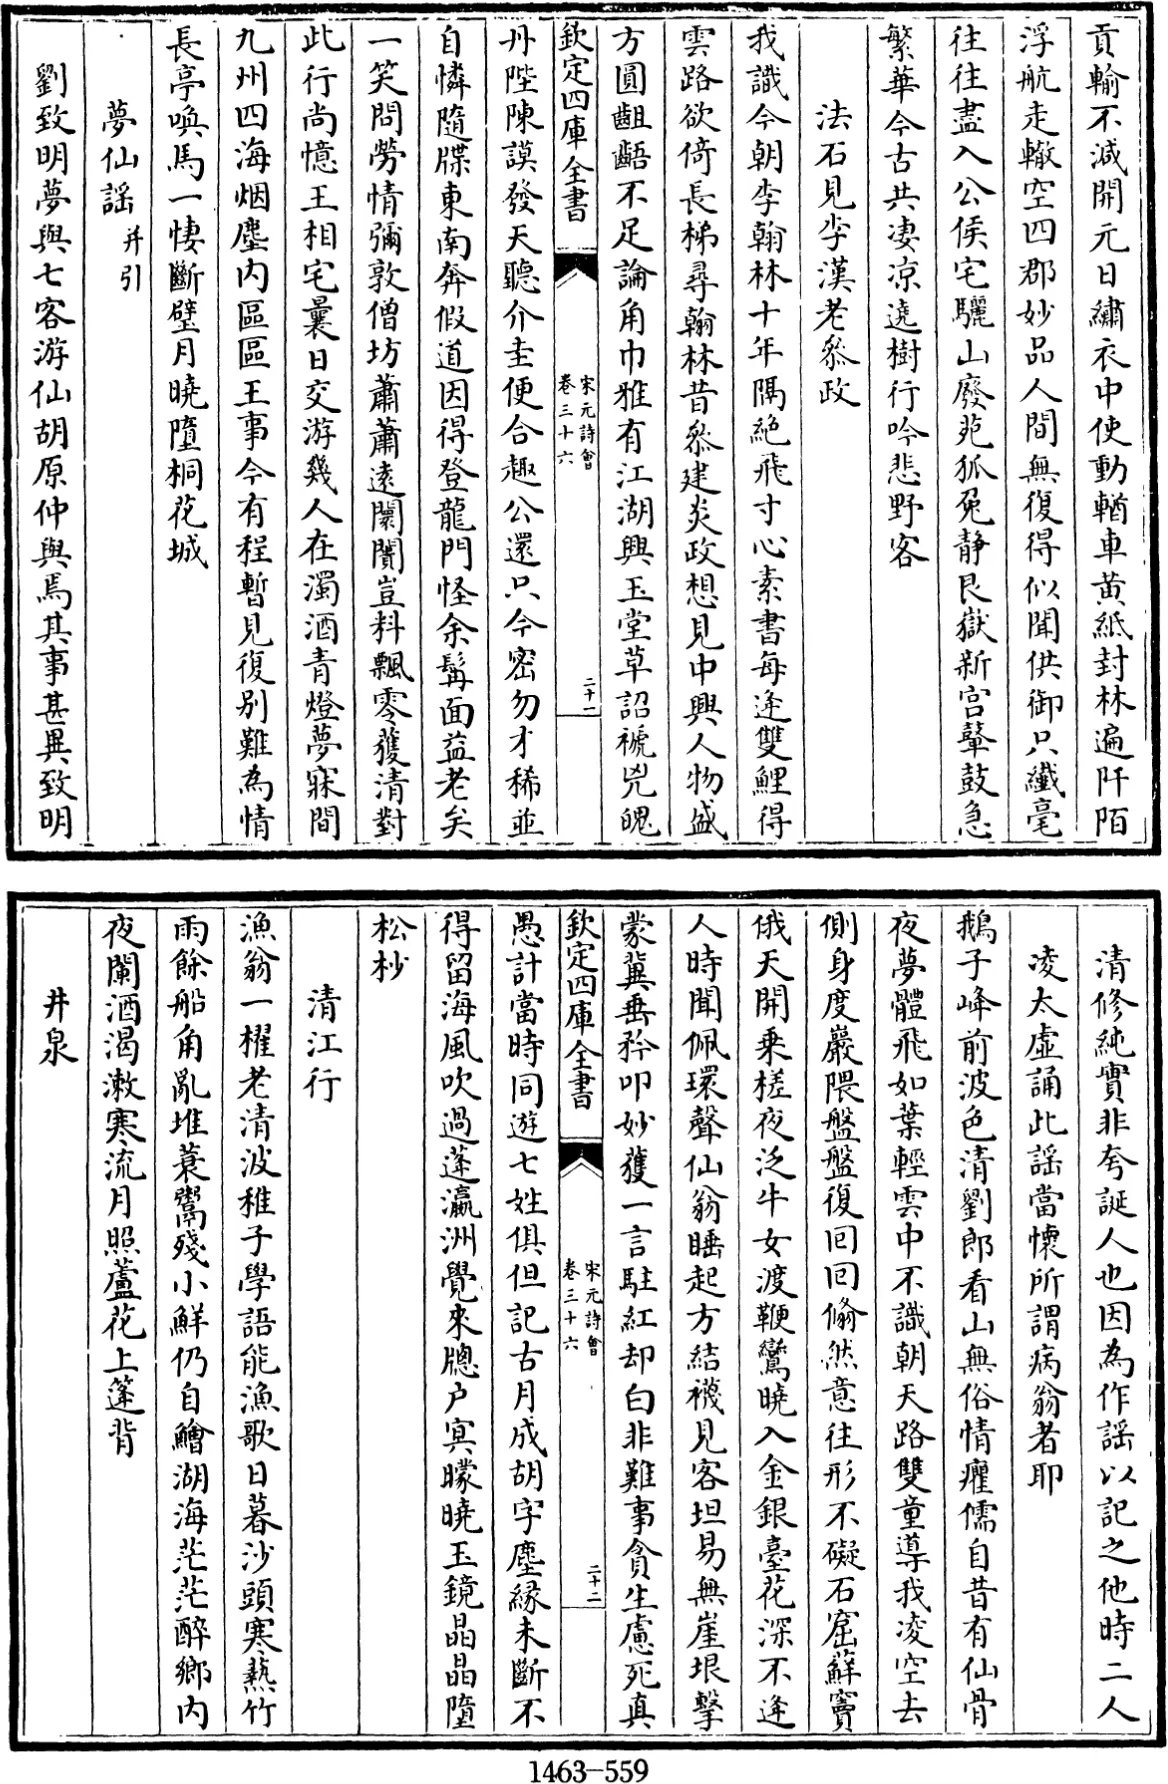 貢輸不減開元日繡衣中使動輶車黄紙封林遍阡陌
浮航走轍空四郡妙品人間無復得似聞供御只纎毫
往往盡入公侯宅驪山廢苑狐兔静艮嶽新宫鼙鼓急
繁華今古共凄凉遶樹行吟悲野客
法石見李漢老叅政
我識今朝李翰林十年隔絶飛寸心素書每逢雙鯉得
雲路欲倚長梯尋翰林昔叅建炎政想見中興人物盛
方圓齟齬不足論角巾雅有江湖興玉堂草詔褫兇魄
欽定四庫全書
宋元詩會
卷三十六
二十一
丹陛陳謨發天聽介圭便合趣公還只今密勿才稀並
自憐隨牒東南奔假道因得登龍門怪余髯面益老矣
一笑問勞情彌敦僧坊蕭蕭遠闤闠豈料飄零獲清對
此行尚憶王相宅曩日交游幾人在濁酒青燈夢寐間
九州四海烟塵内區區王事今有程暫見復别難為情
長亭喚馬一悽斷璧月曉墮桐花城
夢仙謡并引
劉致明夢與七客游仙胡原仲與焉其事甚異致明
清修純實非夸誕人也因為作謡以記之他時二人
凌太虛誦此謡當懷所謂病翁者耶
鵝子峰前波色清劉郎看山無俗情癯儒自昔有仙骨
夜夢體飛如葉輕雲中不識朝天路雙童導我凌空去
側身度巖隈盤盤復回回翛然意往形不礙石窟蘚竇
俄天開乗槎夜泛牛女渡鞭鸞曉入金銀臺花深不逢
人時聞佩環聲仙翁睡起方結襪見客坦易無崖垠擊
蒙冀垂矜叩妙獲一言駐紅却白非難事貪生慮死真
欽定四庫全書
宋元詩會
卷三十六
二十二
愚計當時同遊七姓俱但記古月成胡字塵緣未斷不
得留海風吹過蓬瀛洲覺來牕户寅曚曉玉鏡晶晶墮
松杪
清江行
漁翁一櫂老清波稚子學語能漁歌日暮沙頭寒爇竹
雨餘船角亂堆蓑鬻殘小鮮仍自鱠湖海茫茫醉鄉内
夜闌酒渴漱寒流月照蘆花上篷背
井泉
1463-559